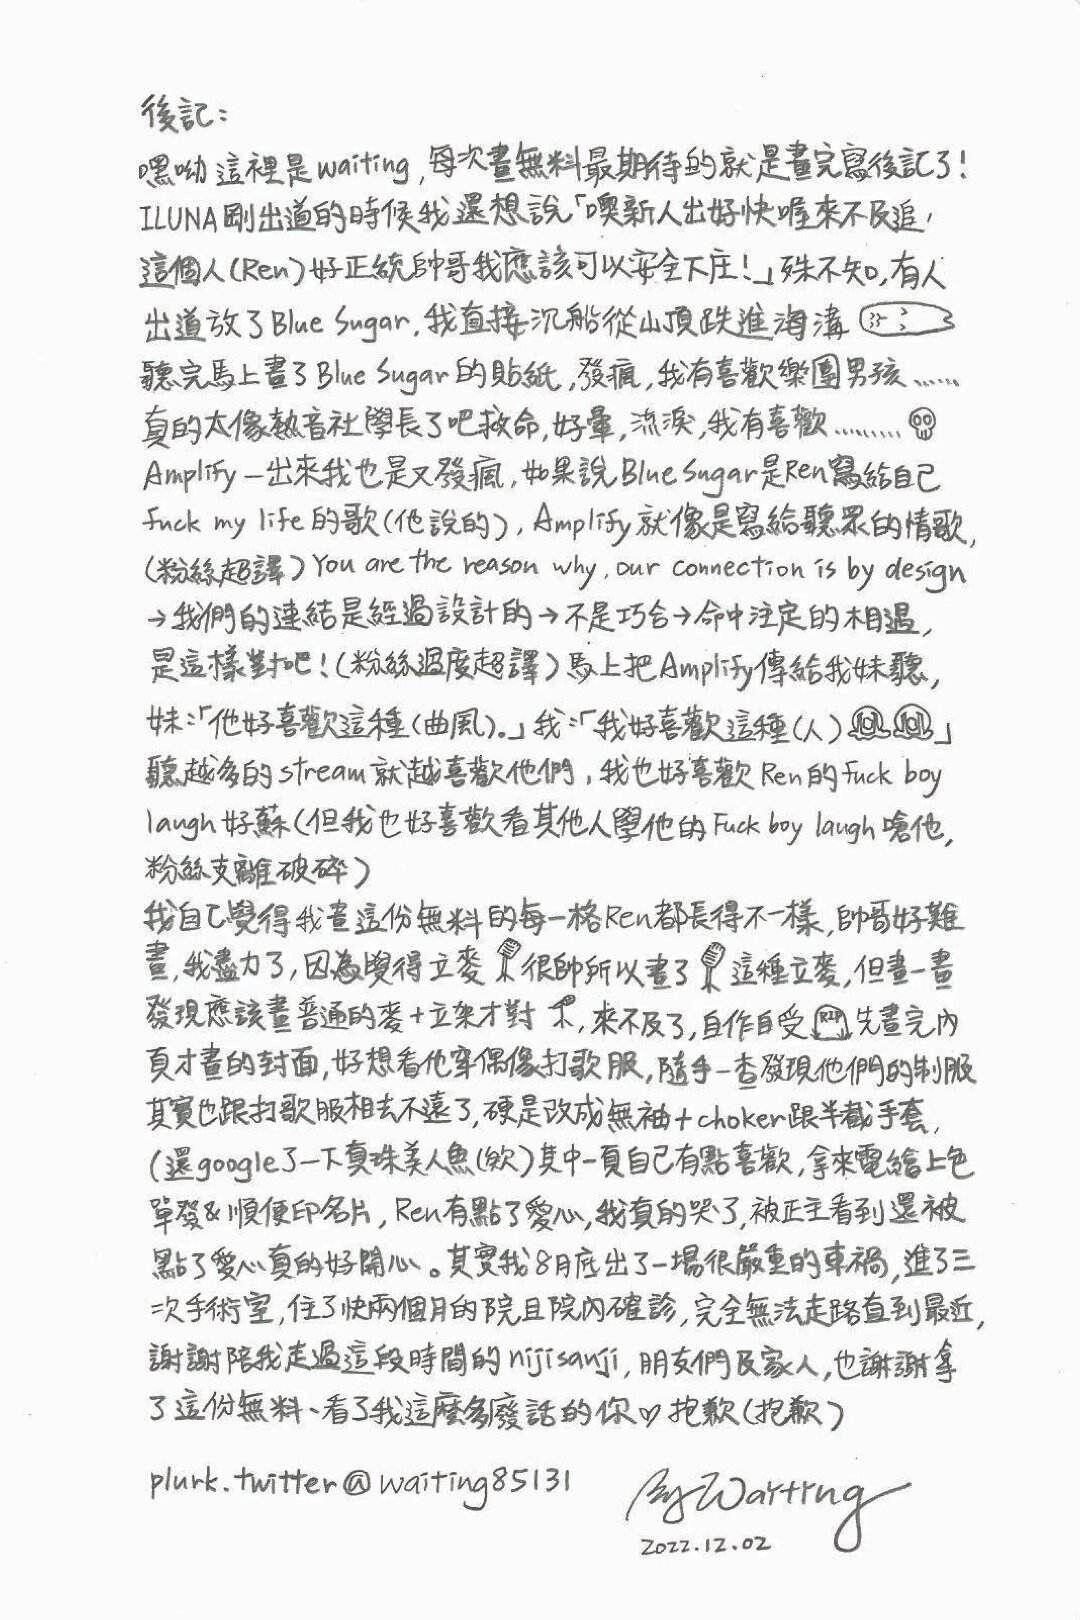 後記：
嘿呦這裡是waiting,每次畫無料最期待的就是畫完寫後記了!
ILUNA剛出道的時候我還想說「噢新人出好快喔來不及追,
這個人(Ren)好正統帥哥我應該可以安全下庄!」殊不知,有人
出道放了Blue Sugar,我直接沉船從山頂跌進海溝
聽完馬上畫了Blue Sugar的貼紙,發瘋,我有喜歡樂團男孩......
真的太像熱音社學長了吧救命,好暈,流淚,我有喜歡.........
Amplify一出來我也是又發瘋,如果說Blue Sugar是Ren寫給自己
fuck my life的歌(他說的),Amplify就像是寫給聽眾的情歌,
(粉絲超譯)You are the reason why, our connection is by design
→我們的連結是經過設計的→不是巧合→命中注定的相遇,
是這樣對吧!(粉絲過度超譯)馬上把Amplify傳給我妹聽,
妹:「他好喜歡這種(曲風)。」我:「我好喜歡這種(人)」
聽越多的stream就越喜歡他們,我也好喜歡Ren的fuck boy
laugh好蘇(但我也好喜歡看其他人學他的Fuck boy laugh嗆他,
粉絲支離破碎)
我自己覺得我畫這份無料的每一格Ren都長得不一樣,帥哥好難
畫,我盡力了,因為覺得立麥很帥所以畫了這種立麥,但畫一畫
發現應該畫普通的麥+立架才對,來不及了,自作自受 先畫完內
頁才畫的封面,好想看他穿偶像打歌服,隨手一查發現他們的制服
其實也跟打歌服相去不遠了,硬是改成無袖+choker跟半截手套,
(還google了一下真珠美人魚(欸)其中一頁自己有點喜歡,拿來電繪上色
單發&順便印名片,Ren有點了愛心,我真的哭了,被正主看到還被
點了愛心真的好開心。其實我8月底出了一場很嚴重的車禍,進了三
次手術室,住了快兩個月的院且院內確診,完全無法走路直到最近,
謝謝陪我走過這段時間的nijisanji,朋友們及家人,也謝謝拿
了這份無料、看了我這麼多廢話的你♡抱歉(抱歉)
plurk.twitter@waiting85131
By Waiting
2022.12.02